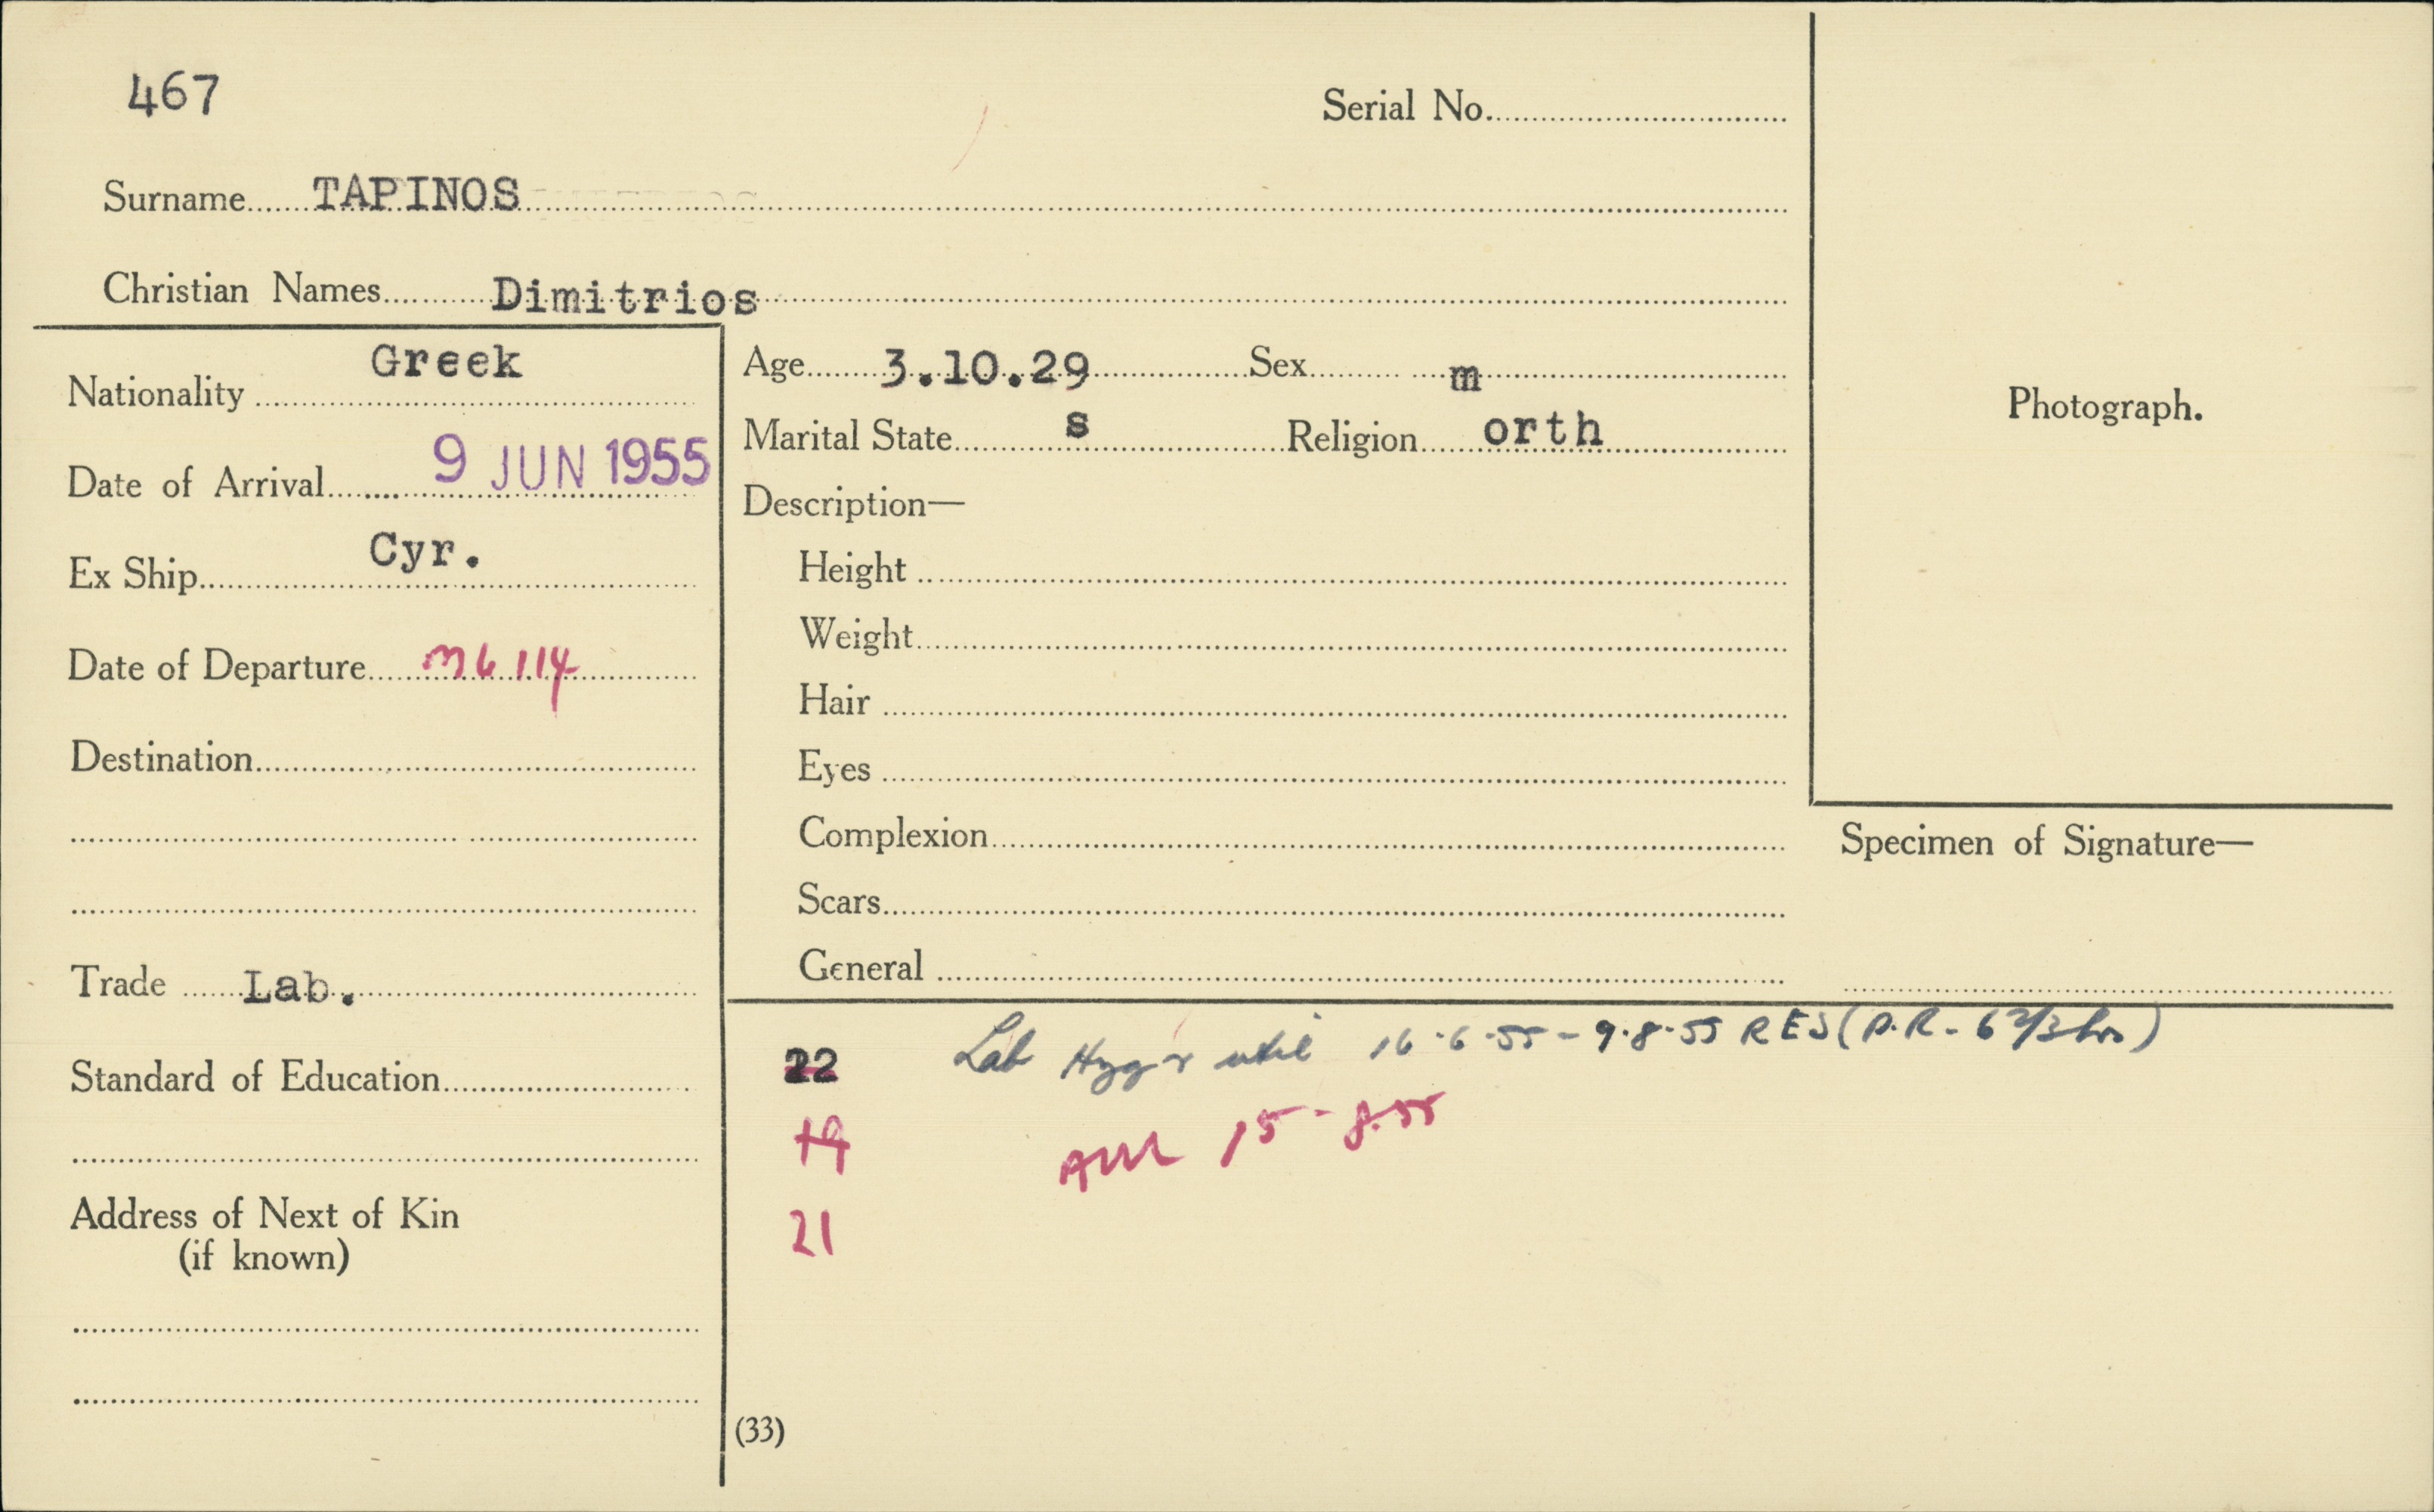 467
Serial No.
Surname TAPINOS
Christian Names Dimitrios
Nationality Greek
Date of Arrival 9 JUN 1955
Ex Ship Cyr.
Date of Departure M6 114
Destination
Trade Lab.
Standard of Education
Address of Next of Kin
(if known)
Age 3.10.29 Sex m
Marital State s Religion orth
Description—
Height
Weight
Hair
Eyes
Complexion
Scars
General
Photograph.
Specimen of Signature—
22 Lab Hyg 16.6.55 - 9.8.55 RES (P.R. - 6 2/3 hrs)
19 15-8.55
21
(33)